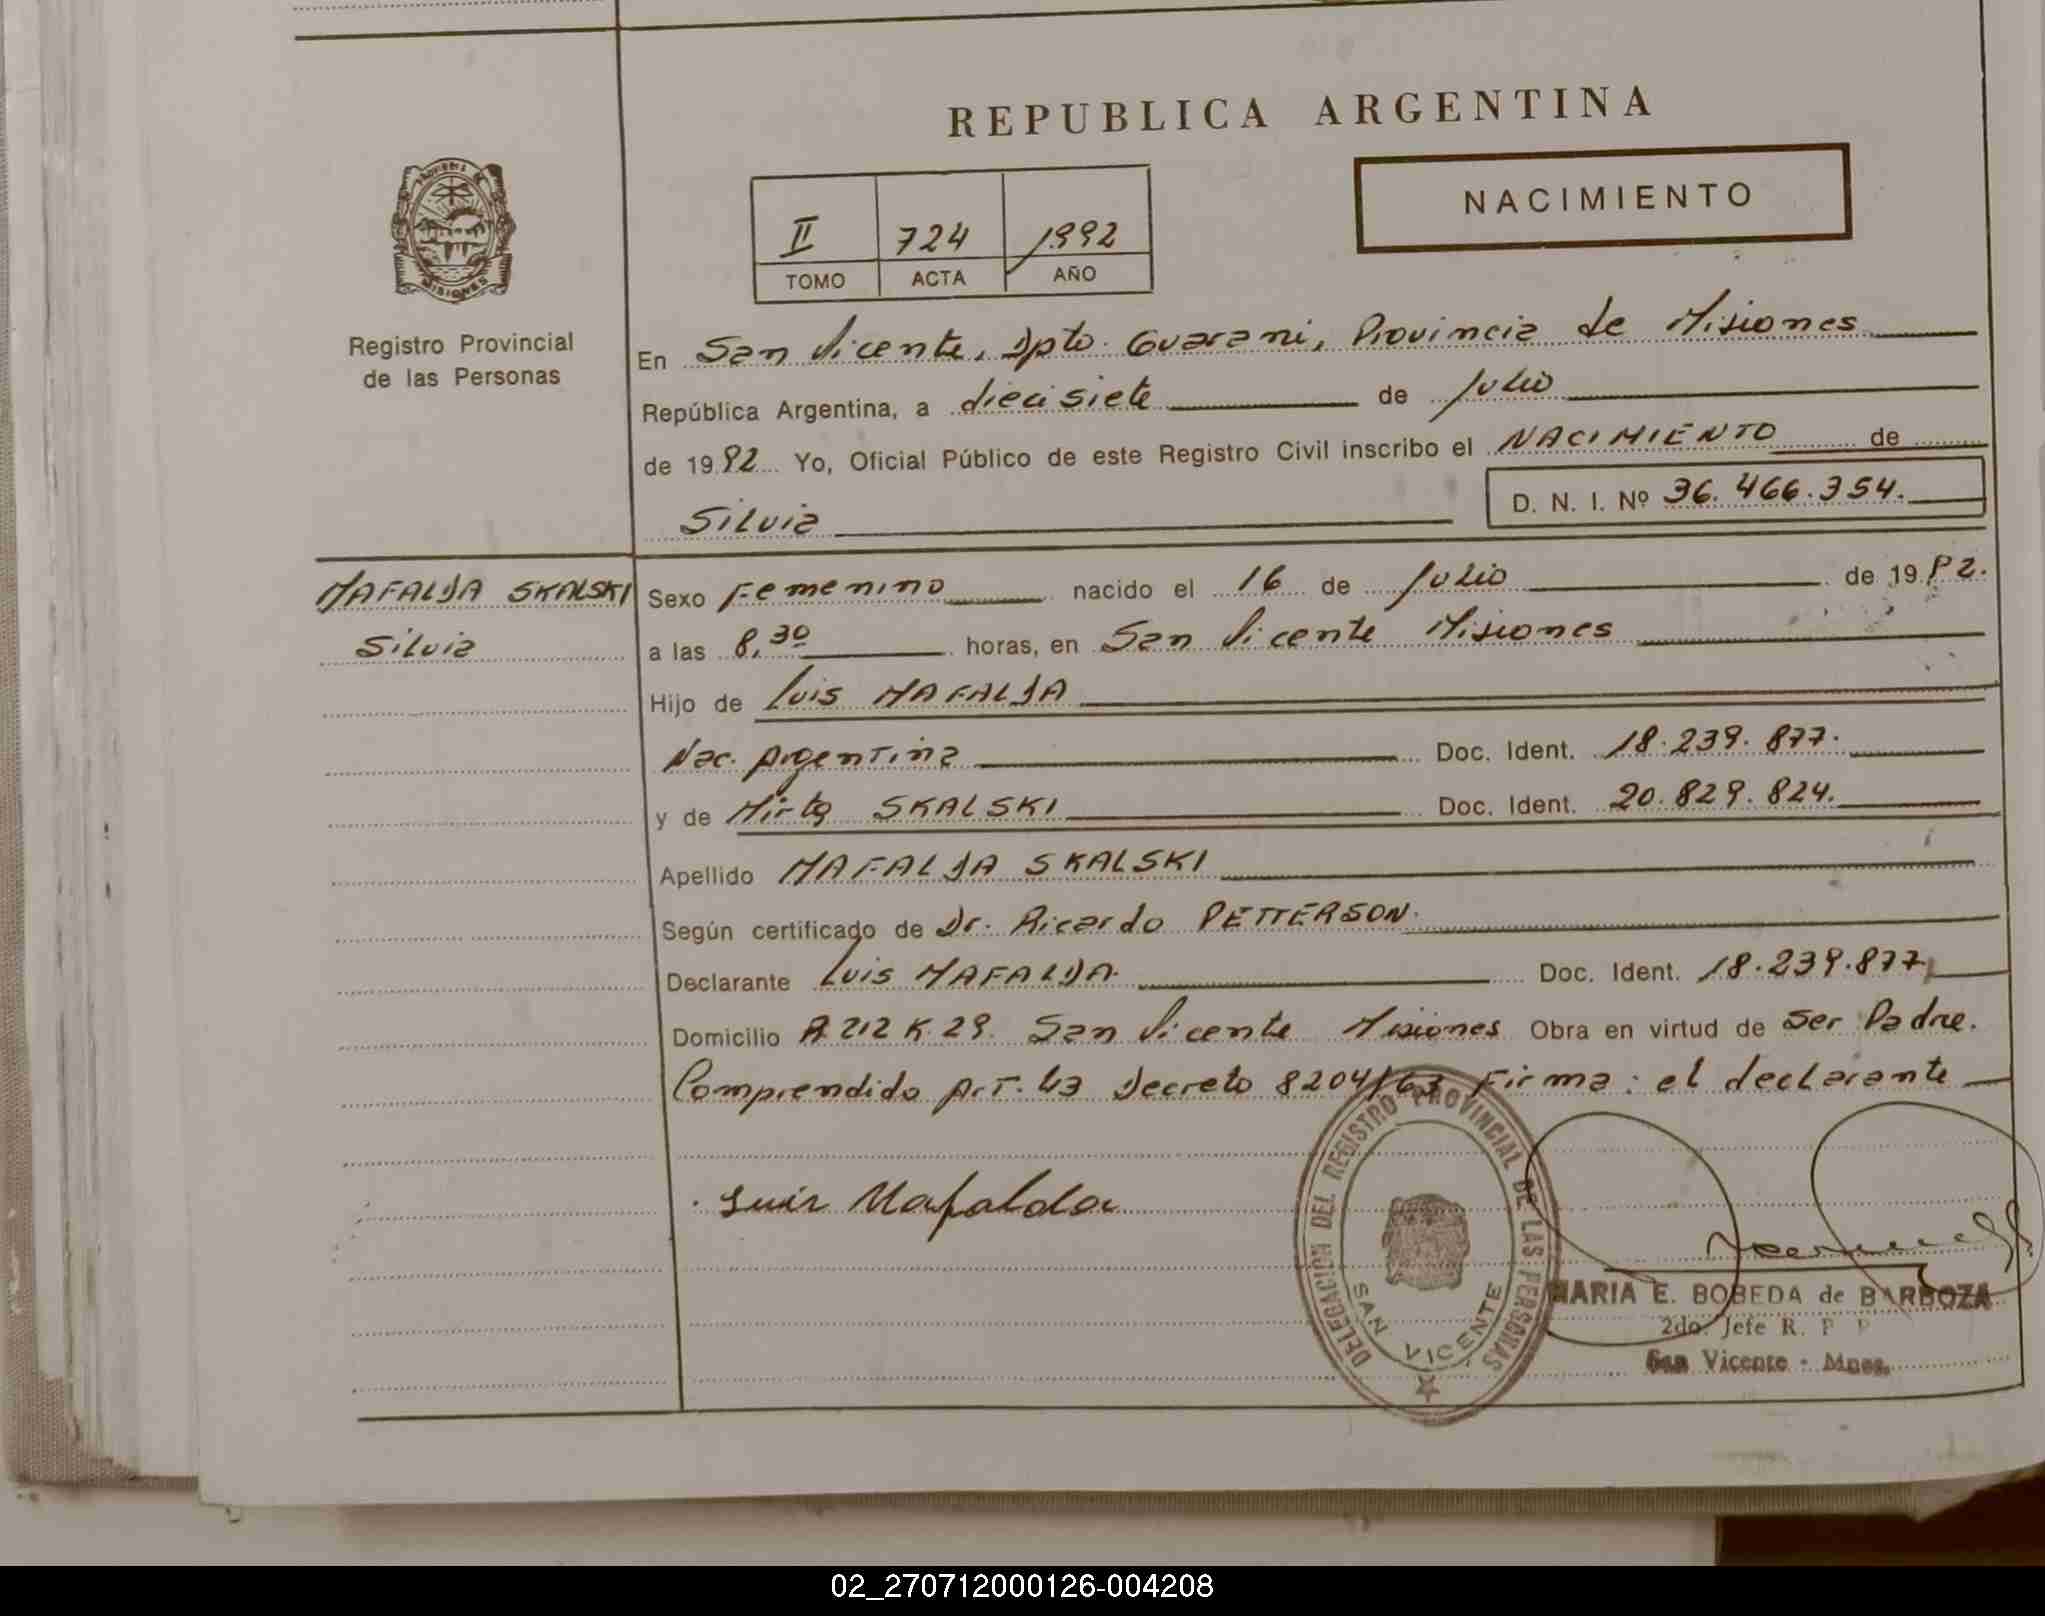 REPUBLICA ARGENTINA
NACIMIENTO
II 724 1992
TOMO ACTA AÑO
PROVINCIA DE
MISIONES
Registro Provincial
de las Personas
En San Vicente, Dpto. Guarani, Provincia de Misiones
República Argentina, a diecisiete de Julio
de 1992 Yo, Oficial Público de este Registro Civil inscribo el NACIMIENTO de
D. N. I. Nº 36.466.354.
Silvia
MAFALDA SKALSKI
Silvia
Sexo Femenino nacido el 16 de Julio de 1992.
a las 8,30 horas, en San Vicente Misiones
Hijo de Luis MAFALDA
Nac. Argentina Doc. Ident. 18.239.877.
y de Mirta SKALSKI Doc. Ident. 20.829.824.
Apellido MAFALDA SKALSKI
Según certificado de Dr. Ricardo PETTERSON.
Declarante Luis MAFALDA. Doc. Ident. 18.239.877,
Domicilio P. 212 K. 29. San Vicente Misiones Obra en virtud de ser Padre.
Comprendido Art. 43 Decreto 8204/63 Firma: el declarante
Luis Mafalda
DELEGACION DEL REGISTRO PROVINCIAL DE LAS PERSONAS
SAN VICENTE
MARIA E. BOBEDA de BARBOZA
2do. Jefe R. P. P
San Vicente - Mnes.
02_270712000126-004208